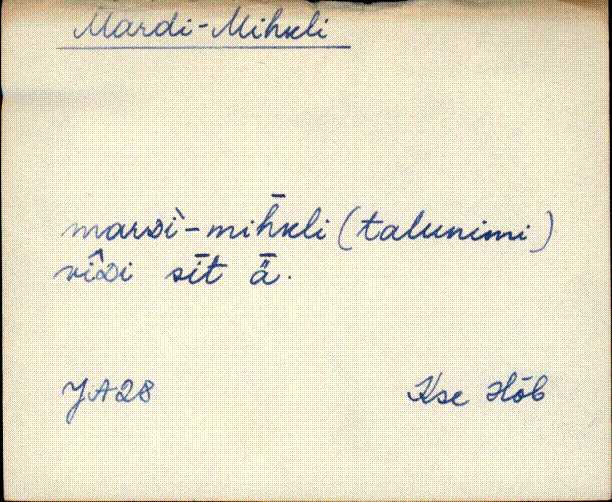 Mardi-Mihkli
marᴅì-mih̄kli (talunimi)
vîᴅi sīt ǟ.
JA28 Kse Hõb